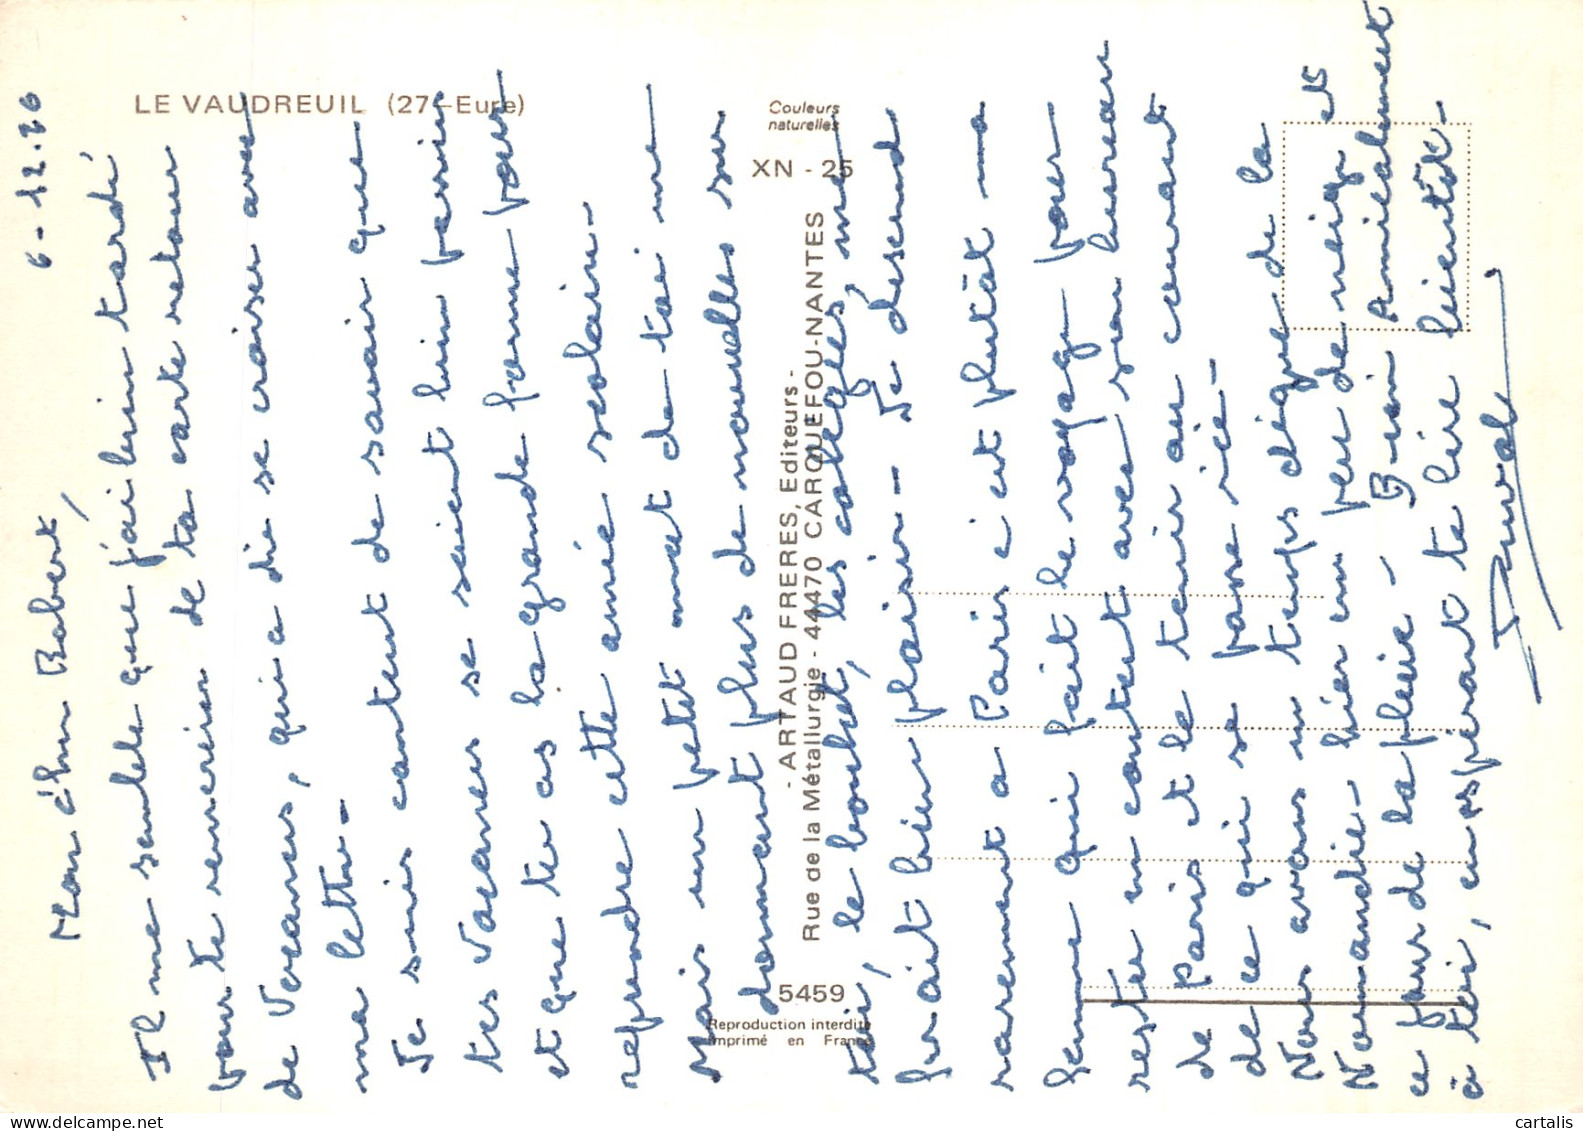 LE VAUDREUIL (27-Eure)
Couleurs
naturelles
XN - 25
- ARTAUD FRERES, Editeurs -
Rue de la Métallurgie - 44470 CARQUEFOU-NANTES
5459
Reproduction interdite
Imprimé en France
6-12.76
Mon cher Robert,
Il me semble que j'ai bien tardé
pour te remercier de ta carte retour
de Vacances, qui a dû se croiser avec
ma lettre -
Je suis content de savoir que
tes Vacances se soient bien passées
et que tu as la grande forme pour
reprendre cette année scolaire -
Mais un petit mot de toi me
donnant plus de nouvelles sur
toi, le boulot, les collègues, me
ferait bien plaisir - Je descend
rarement à Paris c'est plutôt
femme qui fait le voyage pour
rester en contact avec son bureau
de Paris et le tenir au courant
de ce qui se passe ici -
Nous avons un temps digne de la
Normandie - hier un peu de neige et
ce jour de la pluie - Bien Amicalement
à toi, en espérant te lire bientôt -
Duval
cartalis